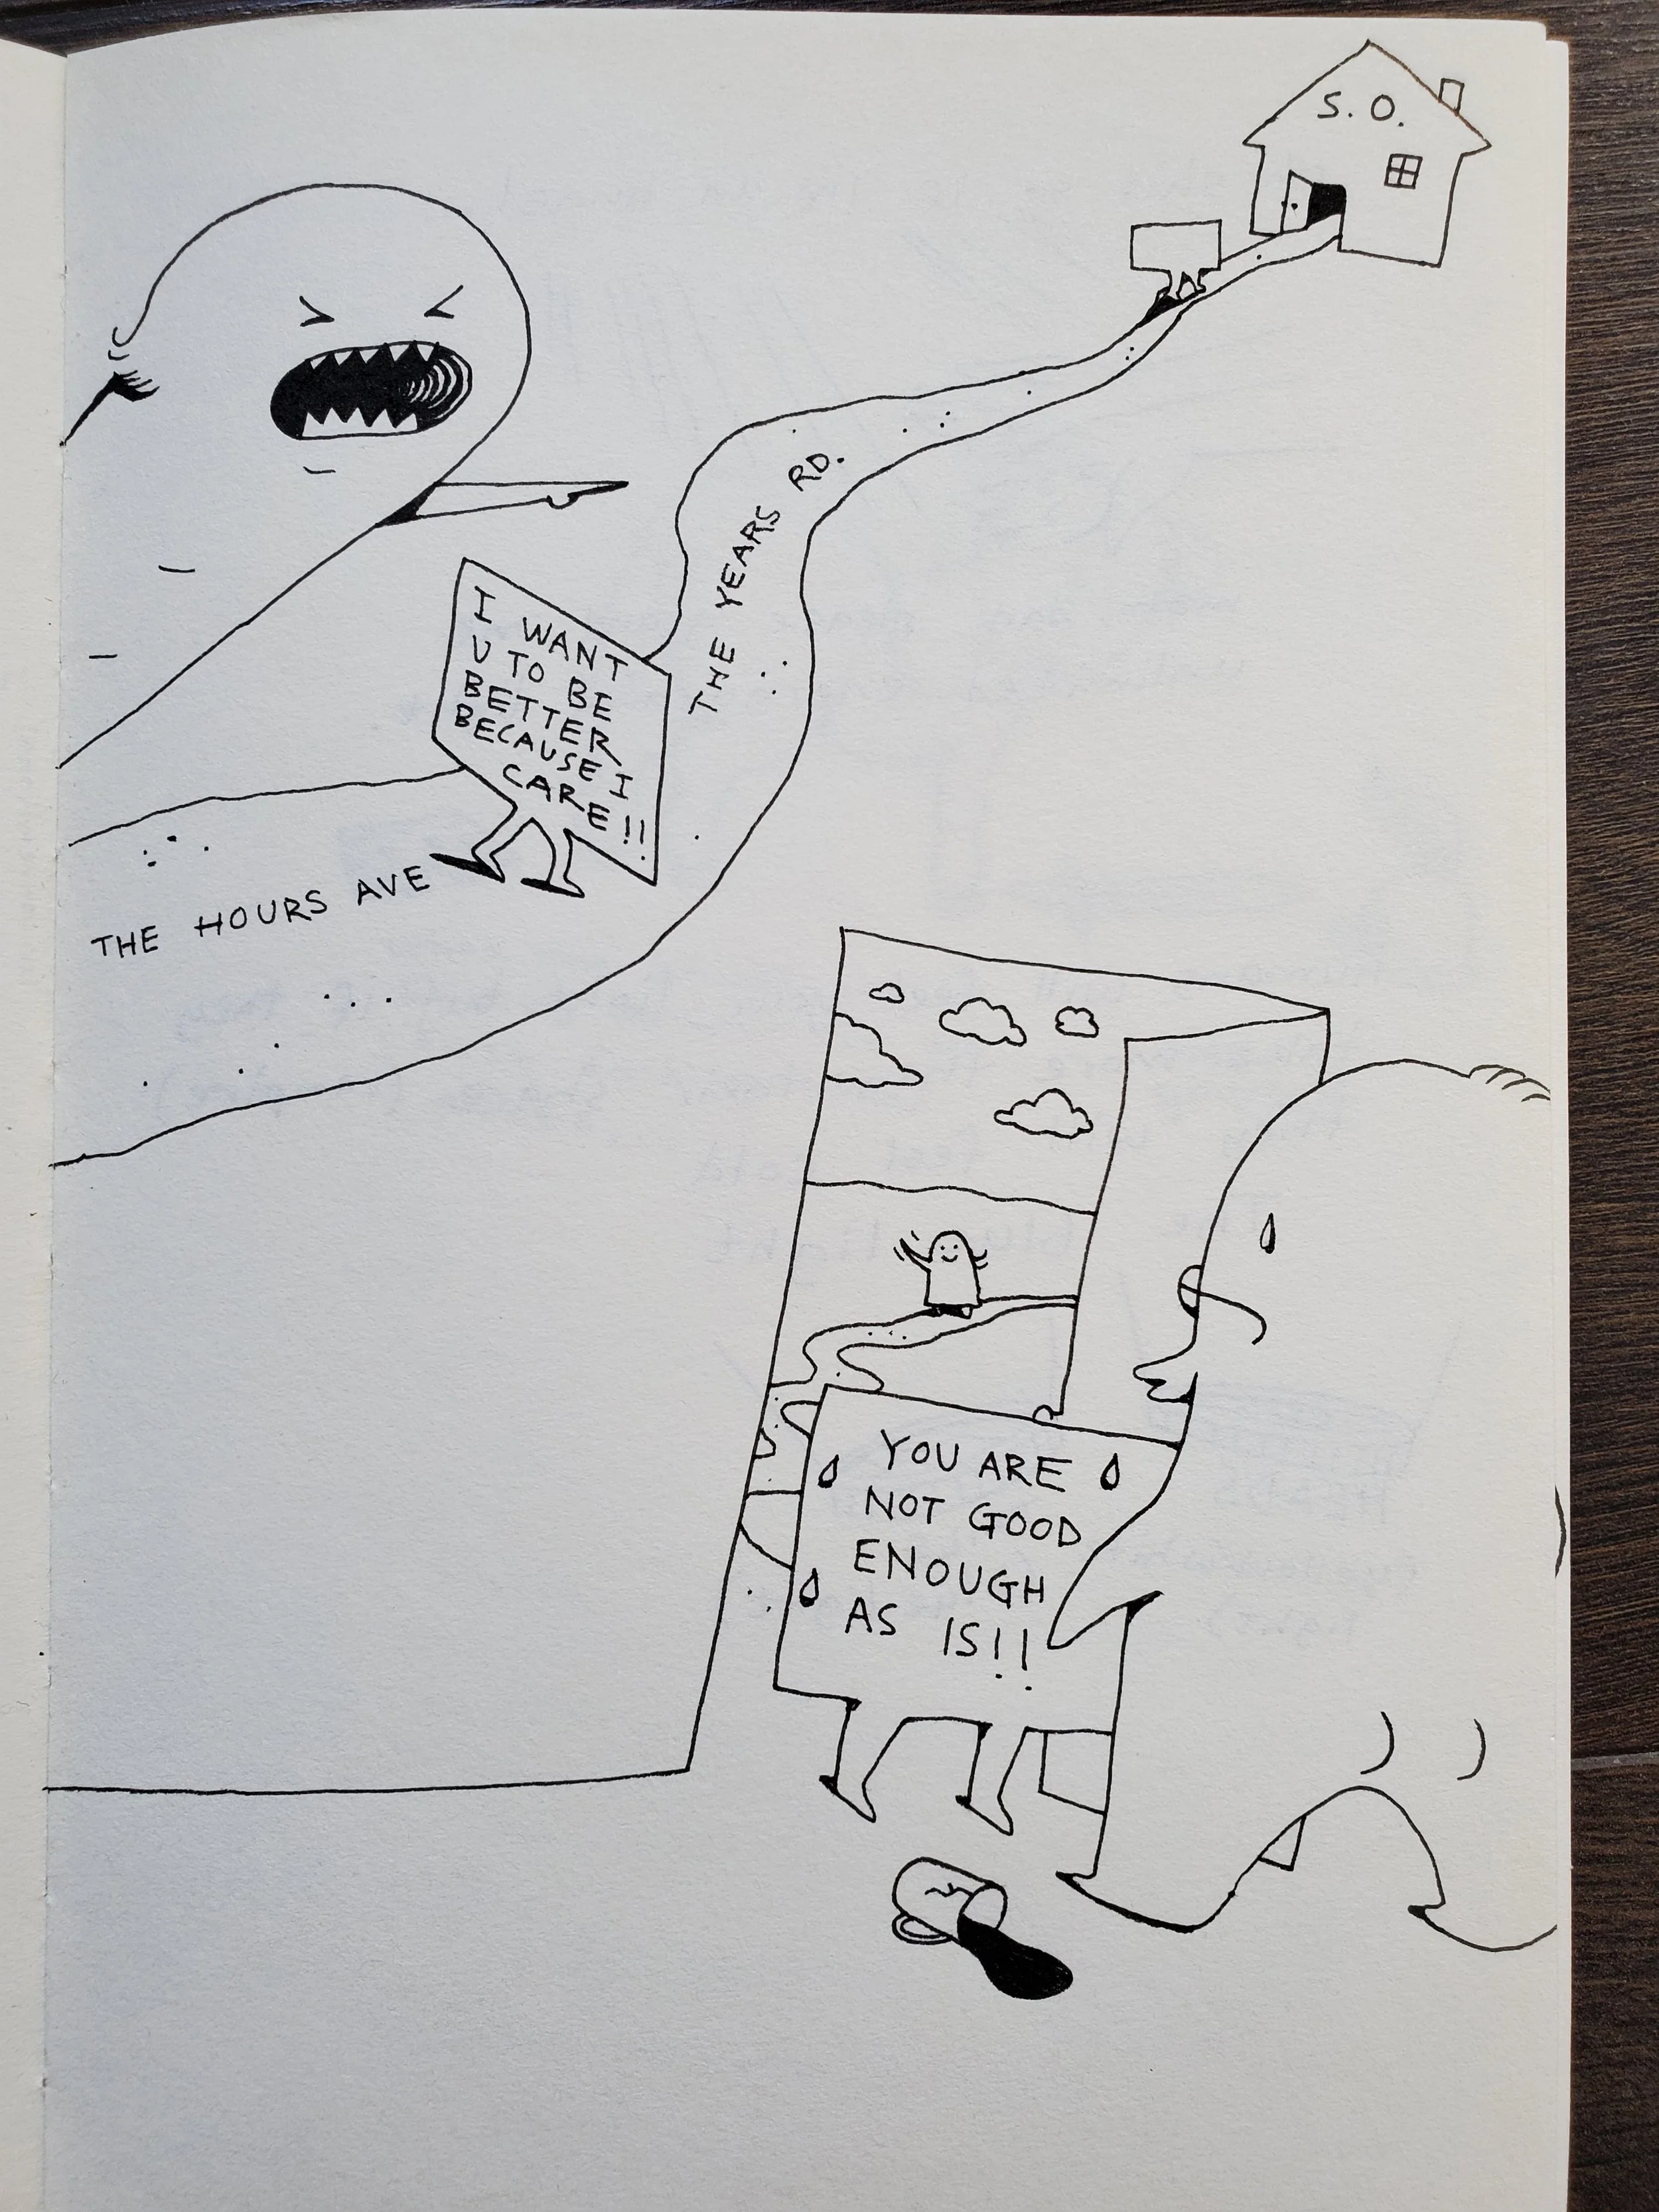 S. O.
THE YEARS RD.
I WANT
U TO BE
BETTER
BECAUSE I
CARE!!
THE HOURS AVE
YOU ARE
NOT GOOD
ENOUGH
AS IS!!